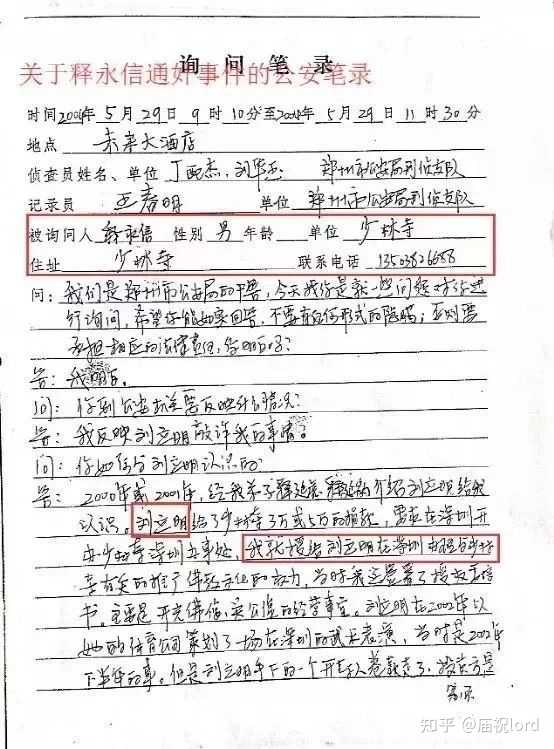 询 问 笔 录
关于释永信通奸事件的公安笔录
时间2004年5月29日9时10分至2004年5月29日11时30分
地点 未来大酒店
侦查员姓名、单位 丁 杰、刘华 郑州市公安局刑侦支队
记录员 王春明 单位 郑州市公安局刑侦支队
被询问人 释永信 性别 男 年龄 单位 少林寺
住址 少林寺 联系电话
问：我们是郑州市公安局的干警，今天我们是就一些问题对你进
行询问，希望你能如实回答，不要有任何形式的隐瞒；否则要
承担相应的法律责任，你明白吗？
答：我明白。
问：你到公安机关要反映什么情况？
答：我反映刘立明敲诈我的事情。
问：你如何与刘立明认识的
答：2000年或2001年，经我弟子释延 介绍刘立明给我
认识。刘立明给了少林寺3万或5万的捐款，要求在深圳开
办少林寺深圳办事处，我就授给刘立明在深圳办理与少林
寺有关的推广佛教文化的权力，当时我还签署了授权委托
书。主要是开光佛像、卖公 的经营事宜。刘立明在2002年以
她的体育公司策划了一场在深圳的武术表演，当时是2002年
下半年的事，但是刘立明手下的一个开车人卷款走了，投资方是
知乎 @庙祝lord